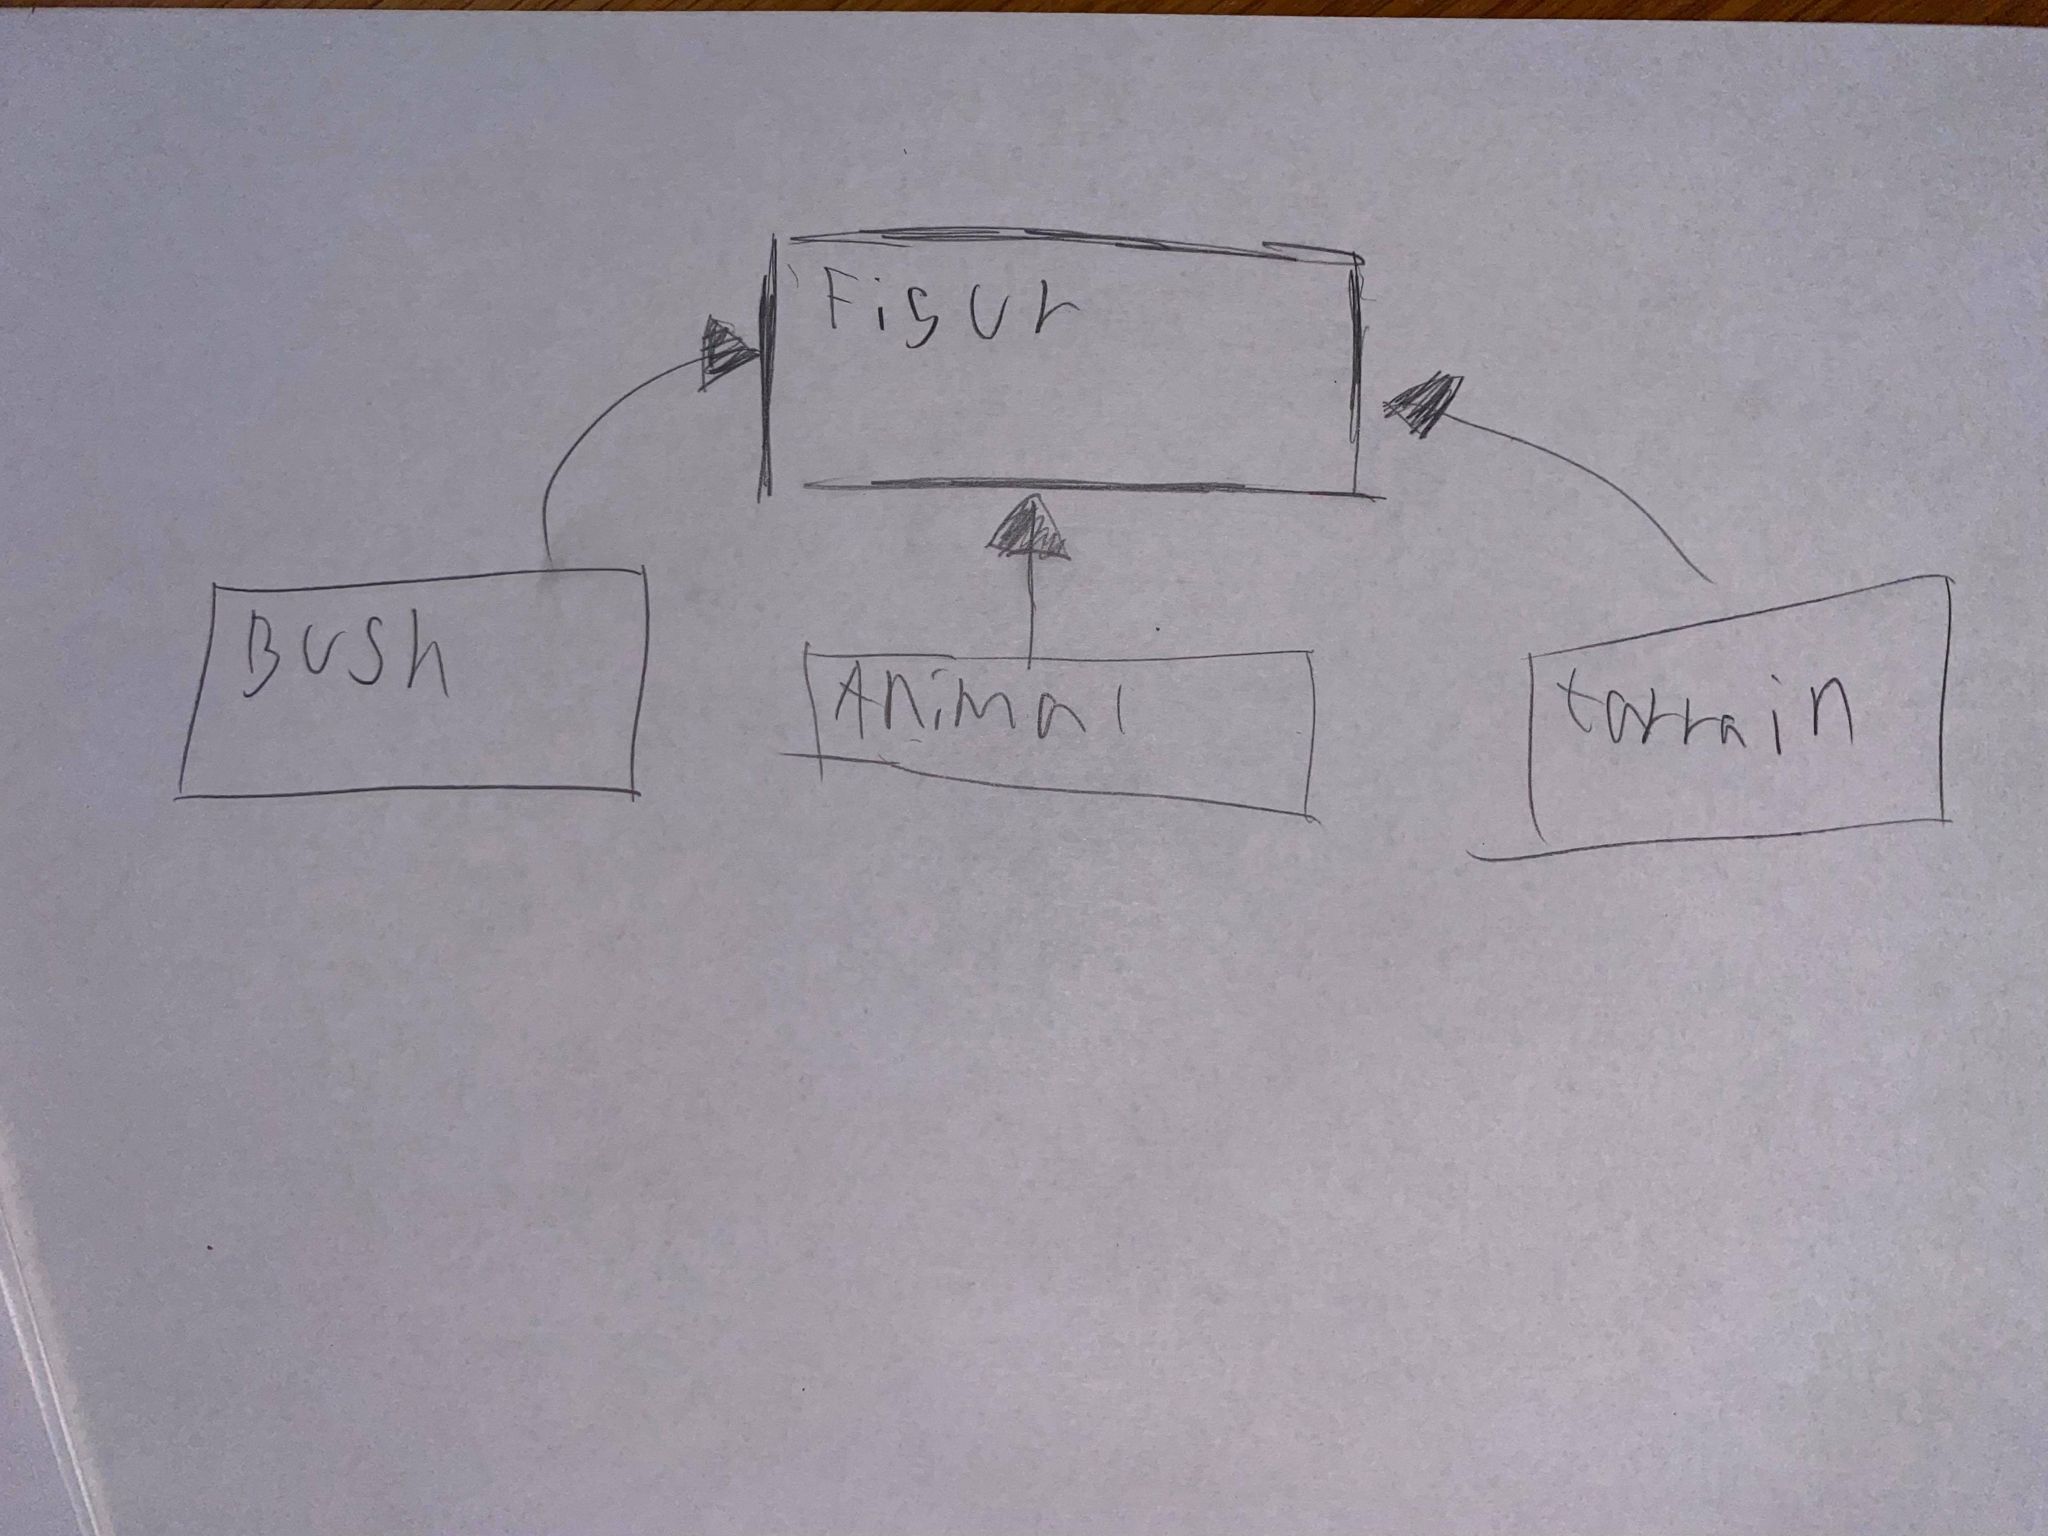 Figur
Bush
Animal
tarrain